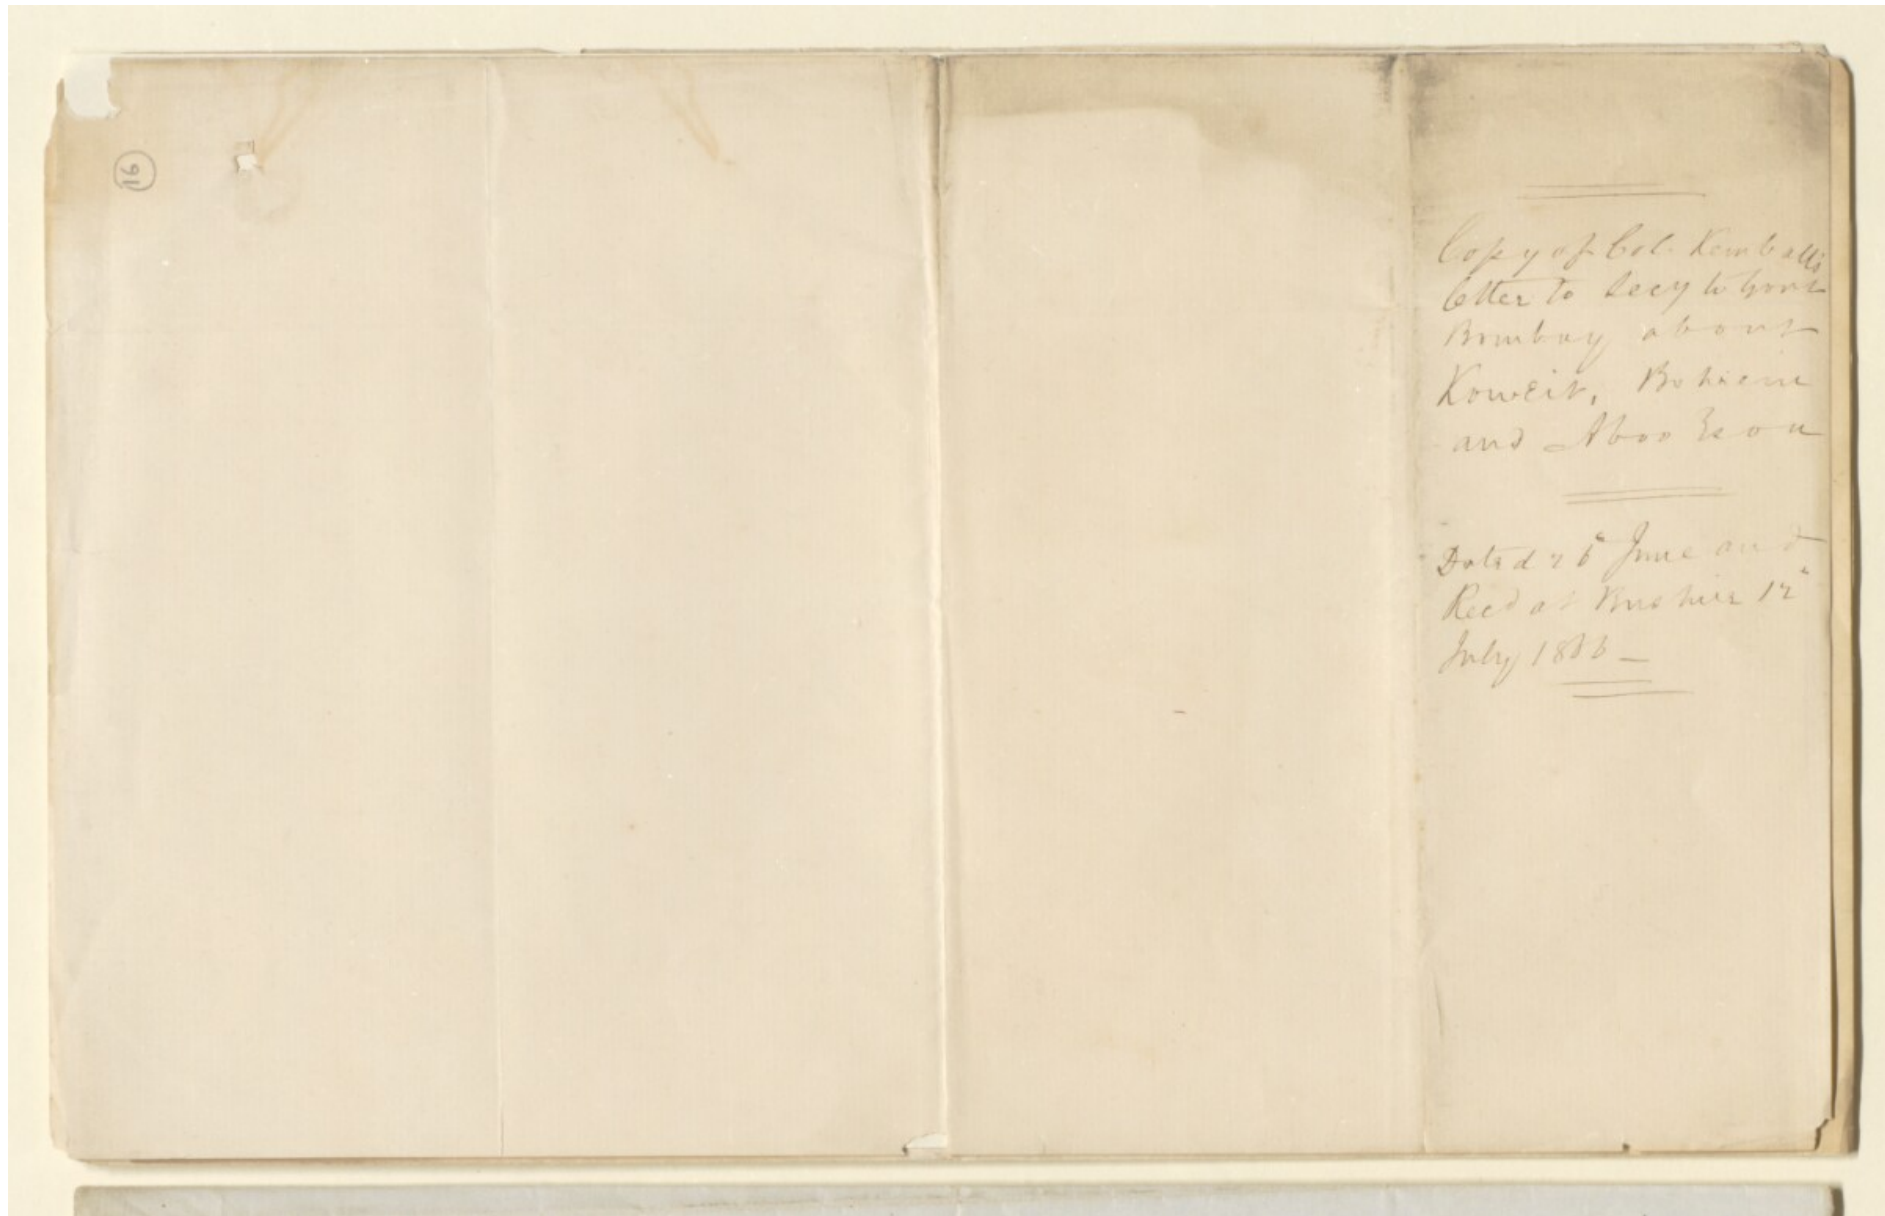 16
Copy of Col. Kemball's
letter to Secy to Govt
Bombay about
Koweit, Bahrein
and Aboo
Dated 26" June and
Recd at Bushire 12"
July 1866 _